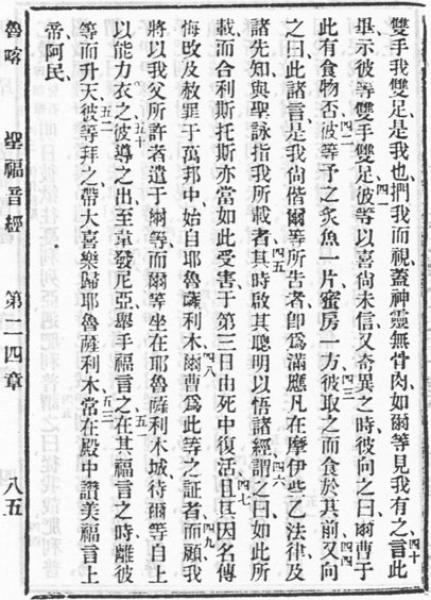 雙手我雙足是我也捫我而視蓋神靈無骨肉如爾等見我有之四十言此
畢示彼等雙手雙足四一彼等以喜尚未信又奇異之時彼向之曰爾曹于
此有食物否四二彼等予之炙魚一片蜜房一方四三彼取之而食於其前四四又向
之曰此諸言是我尚偕爾等所告者卽為滿應凡在摩伊些乙法律及
諸先知與聖詠指我所載者四五其時啟其聰明以悟諸經四六謂之曰如此所
載而合利斯托斯亦當如此受害于第三日由死中復活四七且其因名傳
悔改及赦罪于萬邦中始自耶魯薩利木四八爾曹為此等之証者四九而願我
將以我父所許者遣于爾等而爾等坐在耶魯薩利木城待爾等自上
以能力衣之五十彼導之出至韋發尼亞舉手福言之五一在其福言之時離彼
等而升天五二彼等拜之帶大喜樂歸耶魯薩利木五三常在殿中讚美福言上
帝阿民
魯喀 聖福音經 第二四章 八五